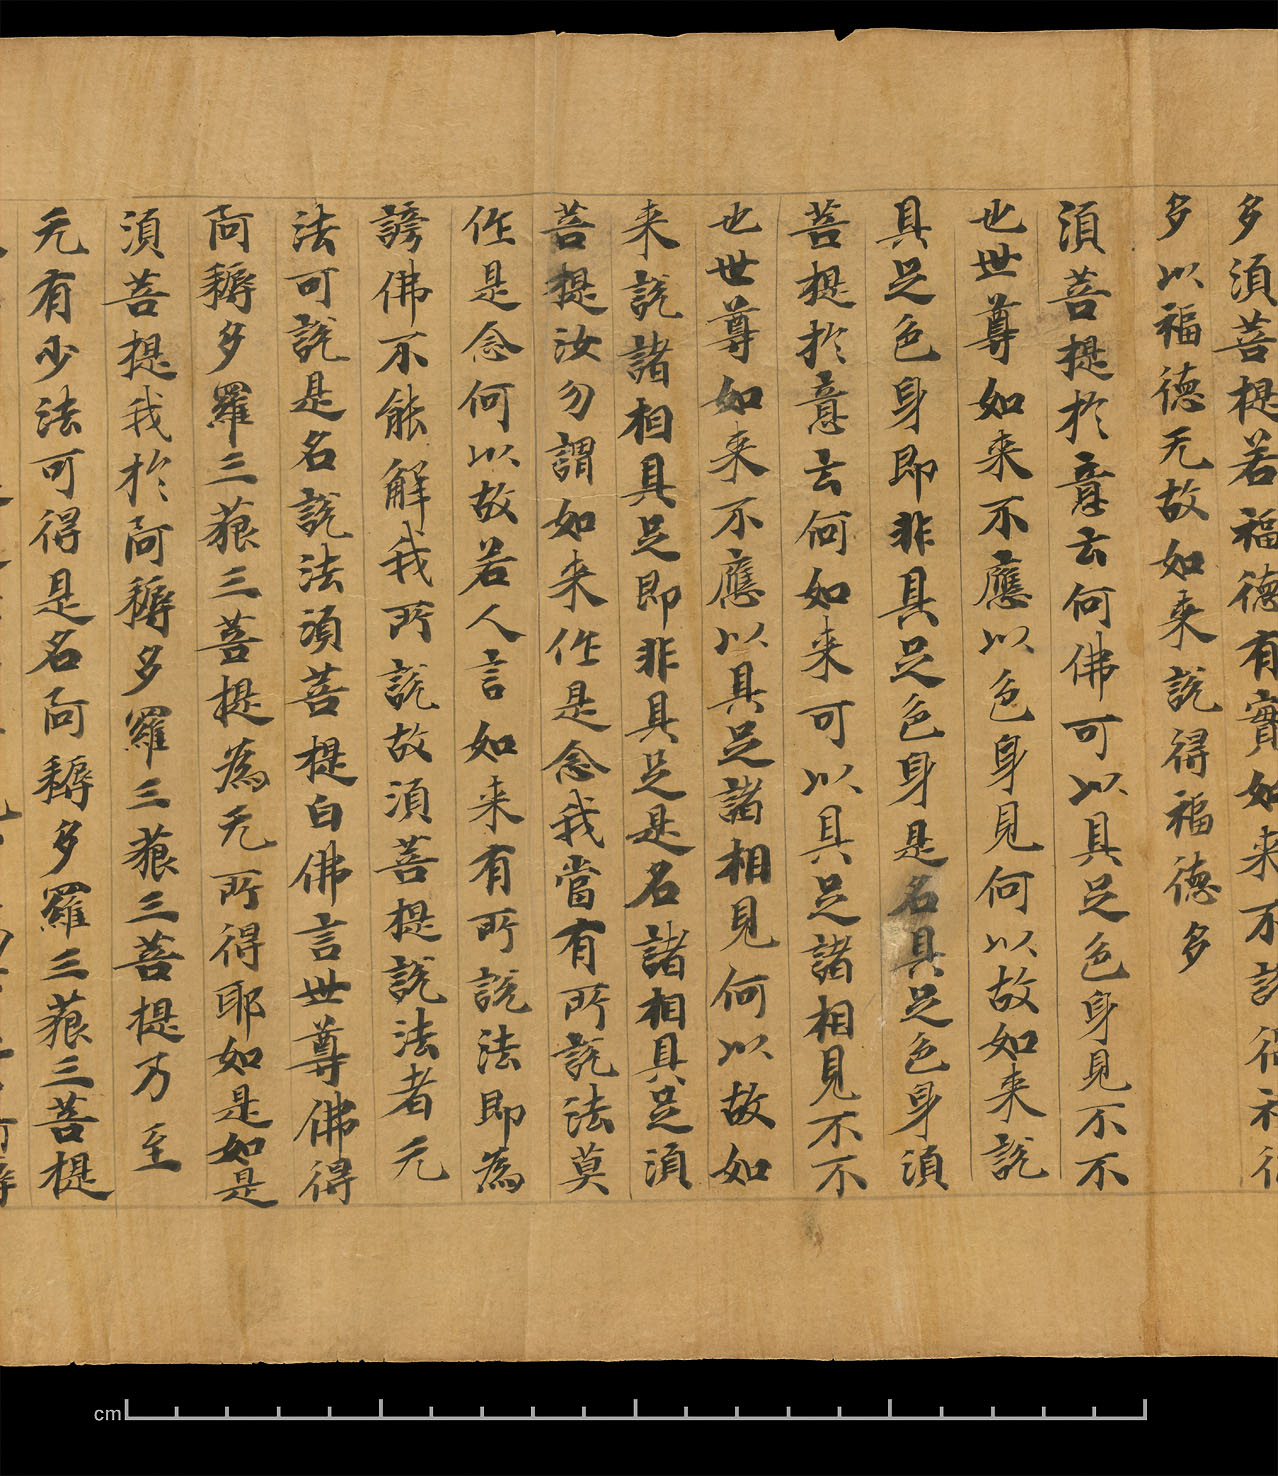 多須菩提若福德有實如来不說得福德
多以福德无故如来說得福德多
須菩提於意云何佛可以具足色身見不不
也世尊如来不應以色身見何以故如来說
具足色身即非具足色身是名具足色身須
菩提於意云何如来可以具足諸相見不不
也世尊如来不應以具足諸相見何以故如
来說諸相具足即非具足是名諸相具足須
菩提汝勿謂如来作是念我當有所說法莫
作是念何以故若人言如来有所說法即為
謗佛不能解我所說故須菩提說法者无
法可說是名說法須菩提白佛言世尊佛得
阿耨多羅三藐三菩提為无所得耶如是如是
須菩提我於阿耨多羅三藐三菩提乃至
无有少法可得是名阿耨多羅三藐三菩提